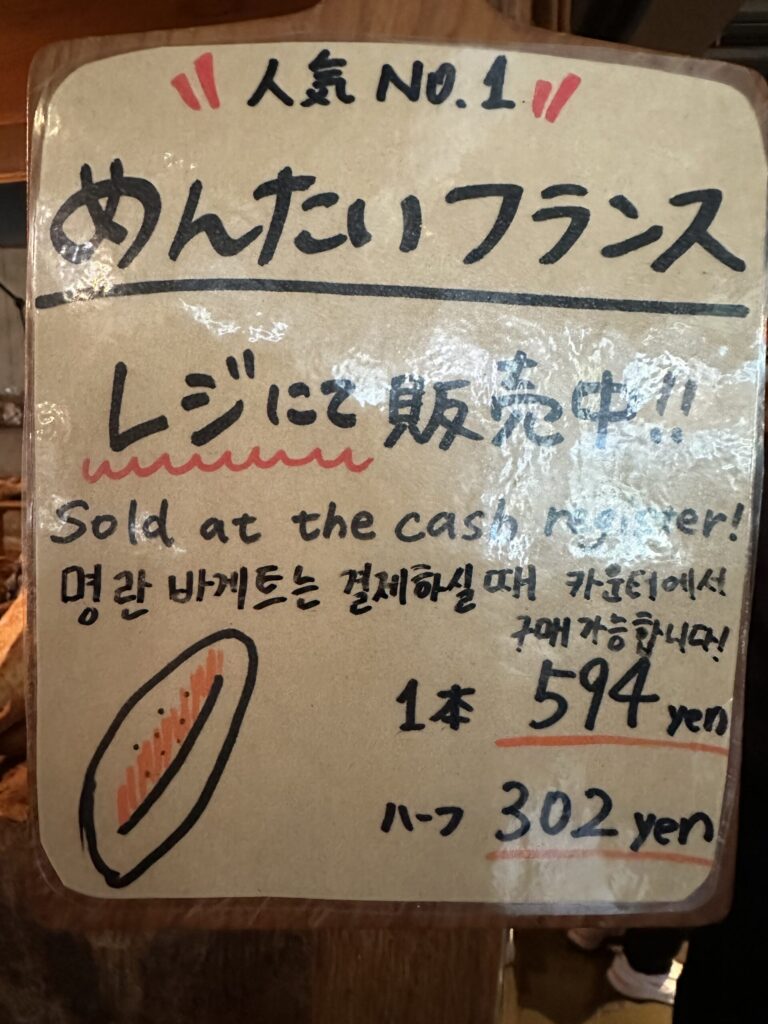 人気 NO.1
めんたいフランス
レジにて販売中!!
Sold at the cash register!
명란 바게트는 결제하실때 카운터에서
구매가능합니다!
1本 594 yen
ハーフ 302 yen